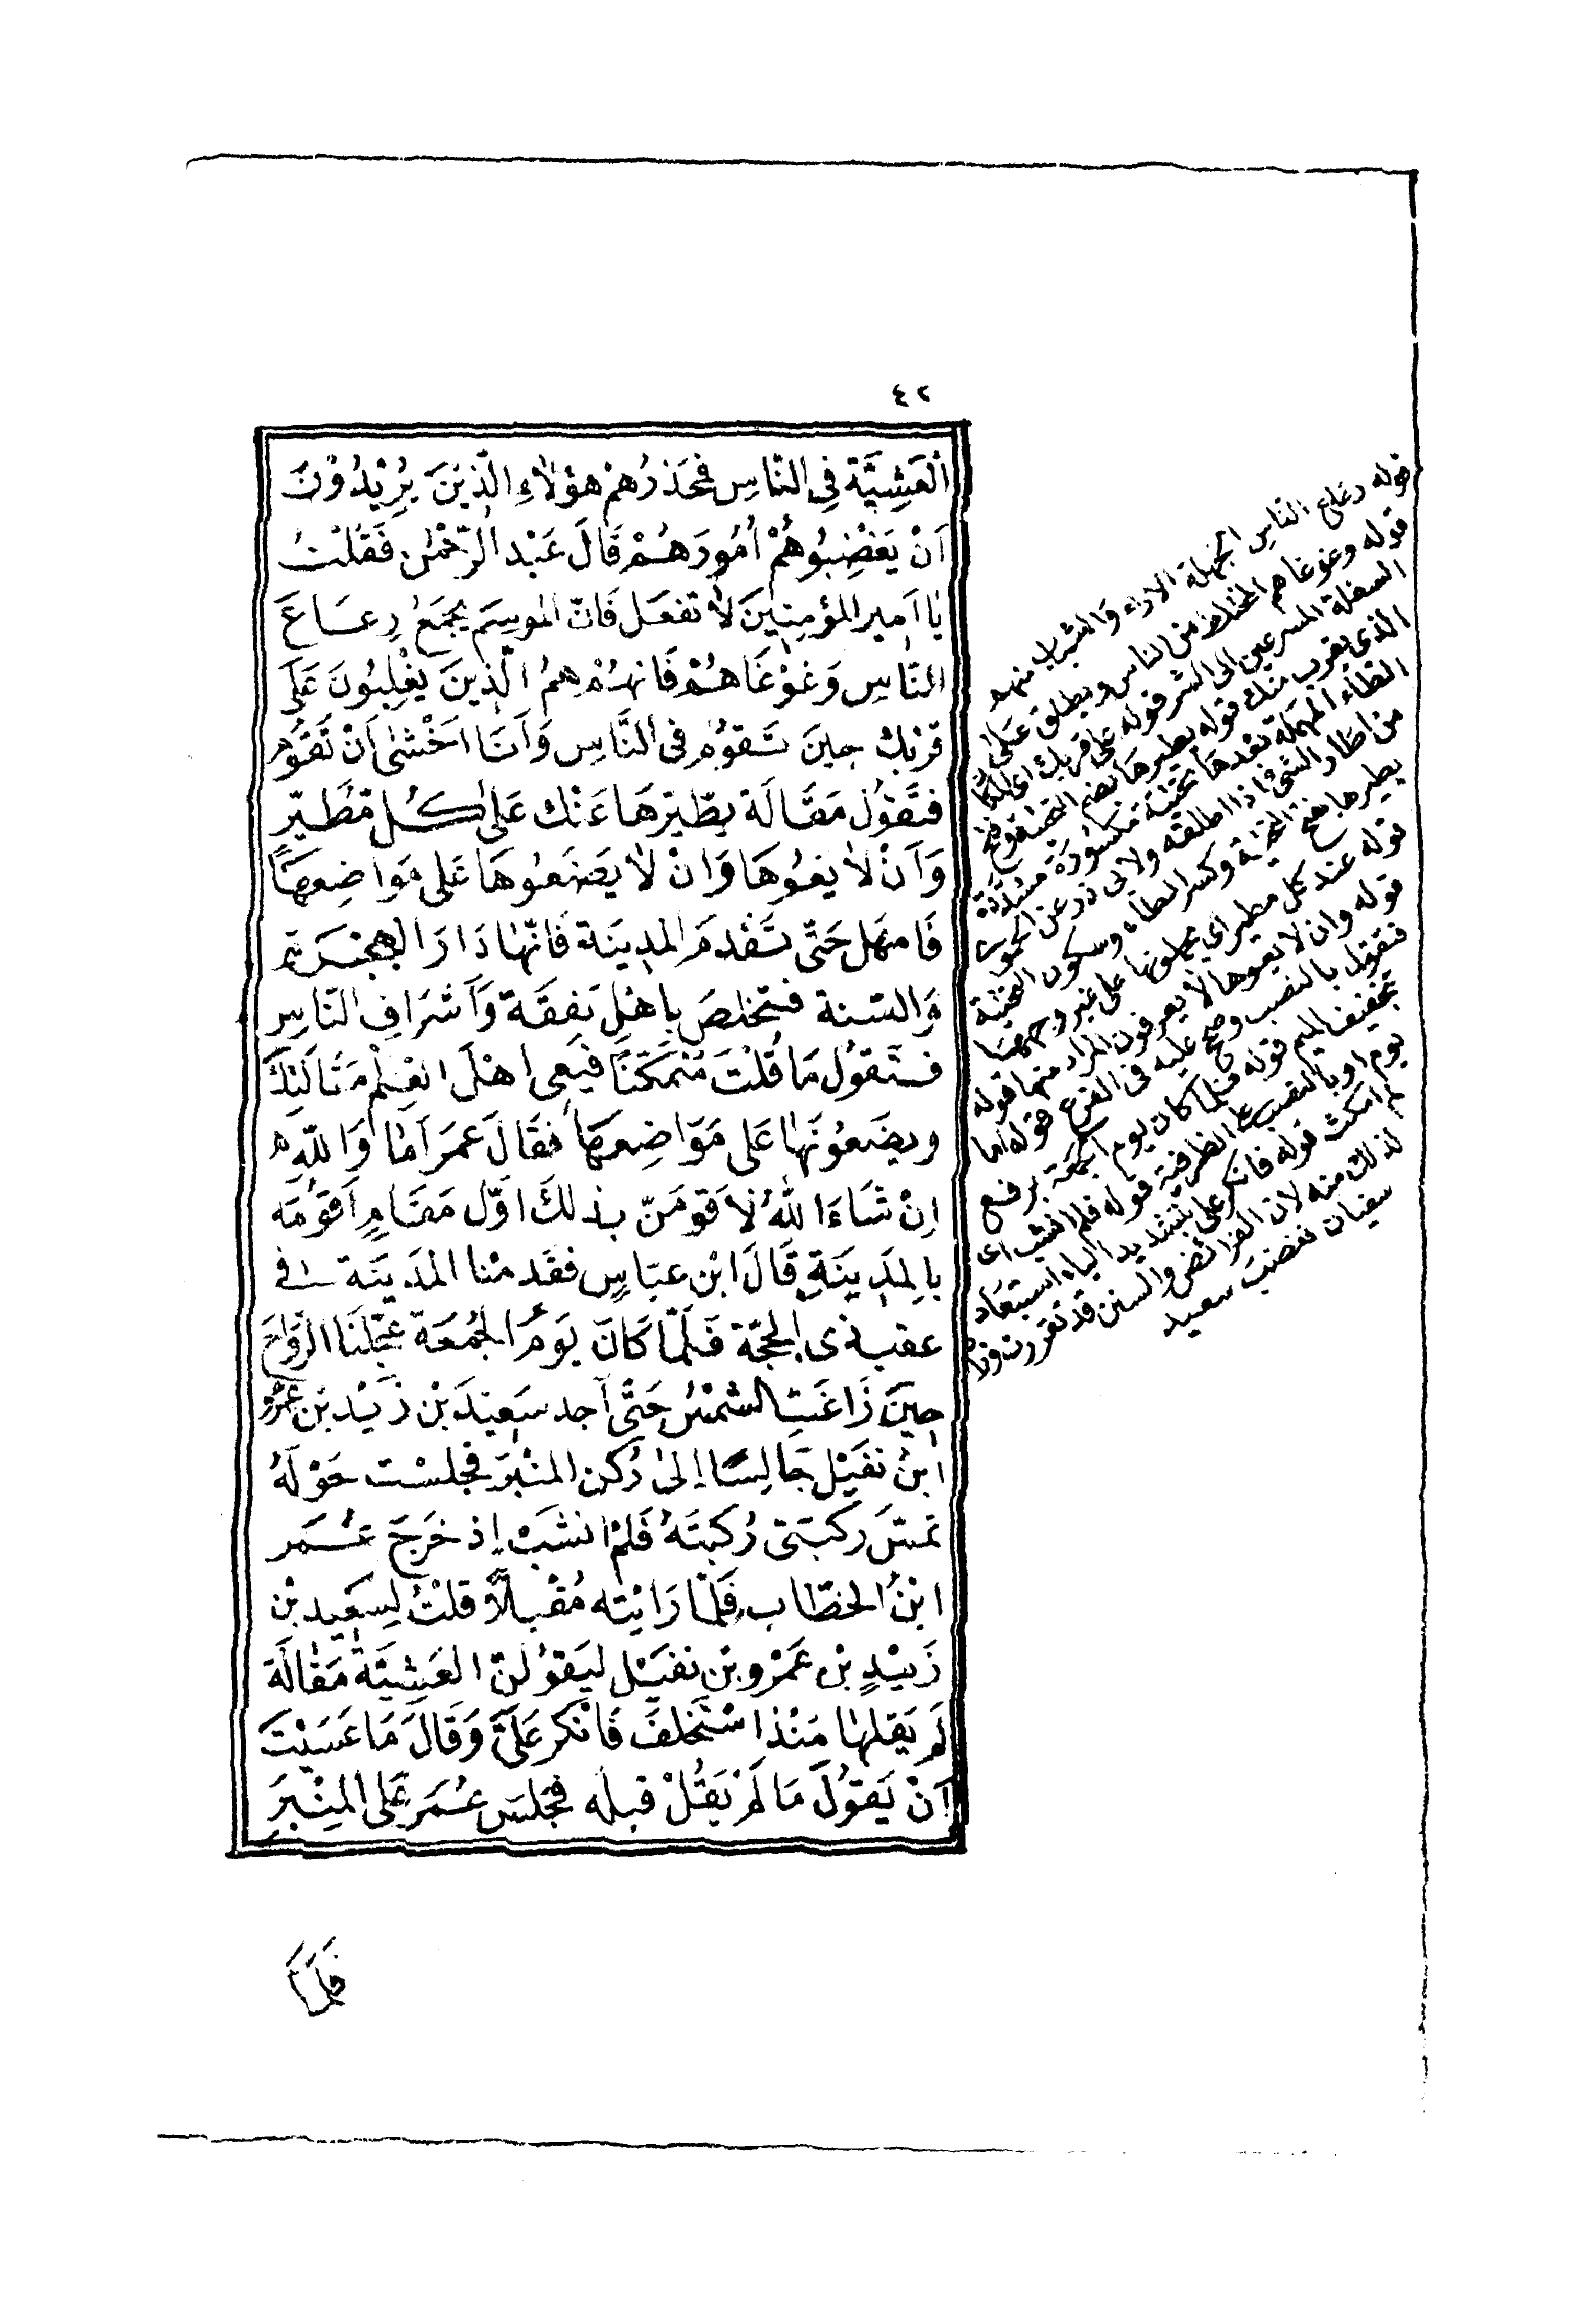 ٤٢
الْعَشِيَّةَ فِى النَّاسِ فَمُحَذِّرُهُمْ هؤُلَاءِ الَّذِيْنَ يُرِيْدُوْنَ
اَنْ يَغْضِبُوْهُمْ اُمُورَهُمْ قَالَ عَبْد الرَّحْمٰنِ فَقُلْتُ
يٰا اَمِير المؤمِنِينَ لاٰ تفعَل فَانّ الموسِمَ يجمَعُ رِعَاعَ
النَّاسِ وَغوْغَاهُمْ فَانهُمْ همُ الّذِينَ يغْلِبُونَ عَلَى
قربِكَ حِينَ تَقوُمُ فى النَّاسِ وَاَنَا اَخْشٰى اَنْ تَقوُمَ
فتَقوُل مَقَالَة يطيّرهَا عَنْك عَلىٰ كُل مُطَيّرٍ
وَاَنْ لاٰ يعُوهَا وَانْ لاٰ يَضَعُوهَا عَلى مَوَاضِعِهَا
فَامهَل حَتّى تَقْدمَ المدِينَة فَانّهٰا دَارَ الهِجْرَةِ
وَالسّنة فتخلصَ بِاهْلِ نفِقَة وَاَشْرَافِ النّاسِ
فتَقوُل مَا قُلْتَ مُتَمَكّنًا فيَعِى اهْلَ العِلْمِ مَقَالَتَكَ
ويضَعُونَهٰا عَلى مَوَاضِعِهَا فقَالَ عمَر اَمٰا وَاللّهِ
اِنْ شَاءَ اللّهُ لاَقومَنّ بذلكَ اوّل مَقَامٍ اَقوُمَه
بالمدِينَةِ قَالَ ابْن عبّاسٍ فقَدمْنا المدَينَة فى
عقب ذى الحجّة فَلَمّا كَانَ يَوَمُ الجُمعَة عَجّلنَا الرَّوَاحَ
حِينَ زَاغَتِ الشمْسُ حَتّى آجد سَعِيدَ بْن زَيْد بْن عَمْرو
ابنُ نفَيْل جَالِسًا اِلىٰ رُكن المنْبَر فجلسْت حَوْلَهُ
تمسّ ركبَتى رُكبَتَهُ فَلمْ انشَبْ اِذ خرَجَ عُمَر
ابْنُ الخطّاب فَلمّا رَايْته مُقْبلاً قلتُ لِسَعِيد بْن
زَيْدٍ بْن عَمْرو بْن نفَيْل ليَقوُلنّ العَشِيّةَ مَقٰالَة
لَم يَقلهٰا مَنْذُ اسْتخلفَ فَانكَر عَلَىَّ وَقَالَ مَا عَسَيْتَ
اَنْ يَقوُلَ مَا لَمْ يَقُلْ قبله فَجَلسَ عُمَر عَلى المِنْبَرِ
فَلَمَّا
قوله رعاع الناس الجهلة الاراء والشباب منهم
قوله وغوغاهم المختلط من الناس ويطلق على
السفلة المسرعين الى الشر قوله على قربك اى المكان
الذى يقرب منك قوله يطيرها بضم التحتية وفتح
الطاء المهملة بعدها تحتية مكسورة مشددة
من اطار الشئ اذا اطلقه ولابى ذر عن الحموى
يطيرها بفتح التحتية وكسر الطاء وسكون التحتية
قوله عند كل مطير اى يحملونها على غير وجهها
قوله وان لا يعوها لا يعرفون المراد منها قوله
فتقول بالنصب وصح عليه فى الفرع قوله اما
بتخفيف الميم قوله فلما كان يوم الجمعة برفع
يوم او بالنصب على الظرفية قوله فلم انشب اى
لم امكث قوله فانكر على بتشديد الياء استبعاد
لذلك منه لان الفرائض والسنن قد تقررت وزاد
سفيان فغضب سعيد